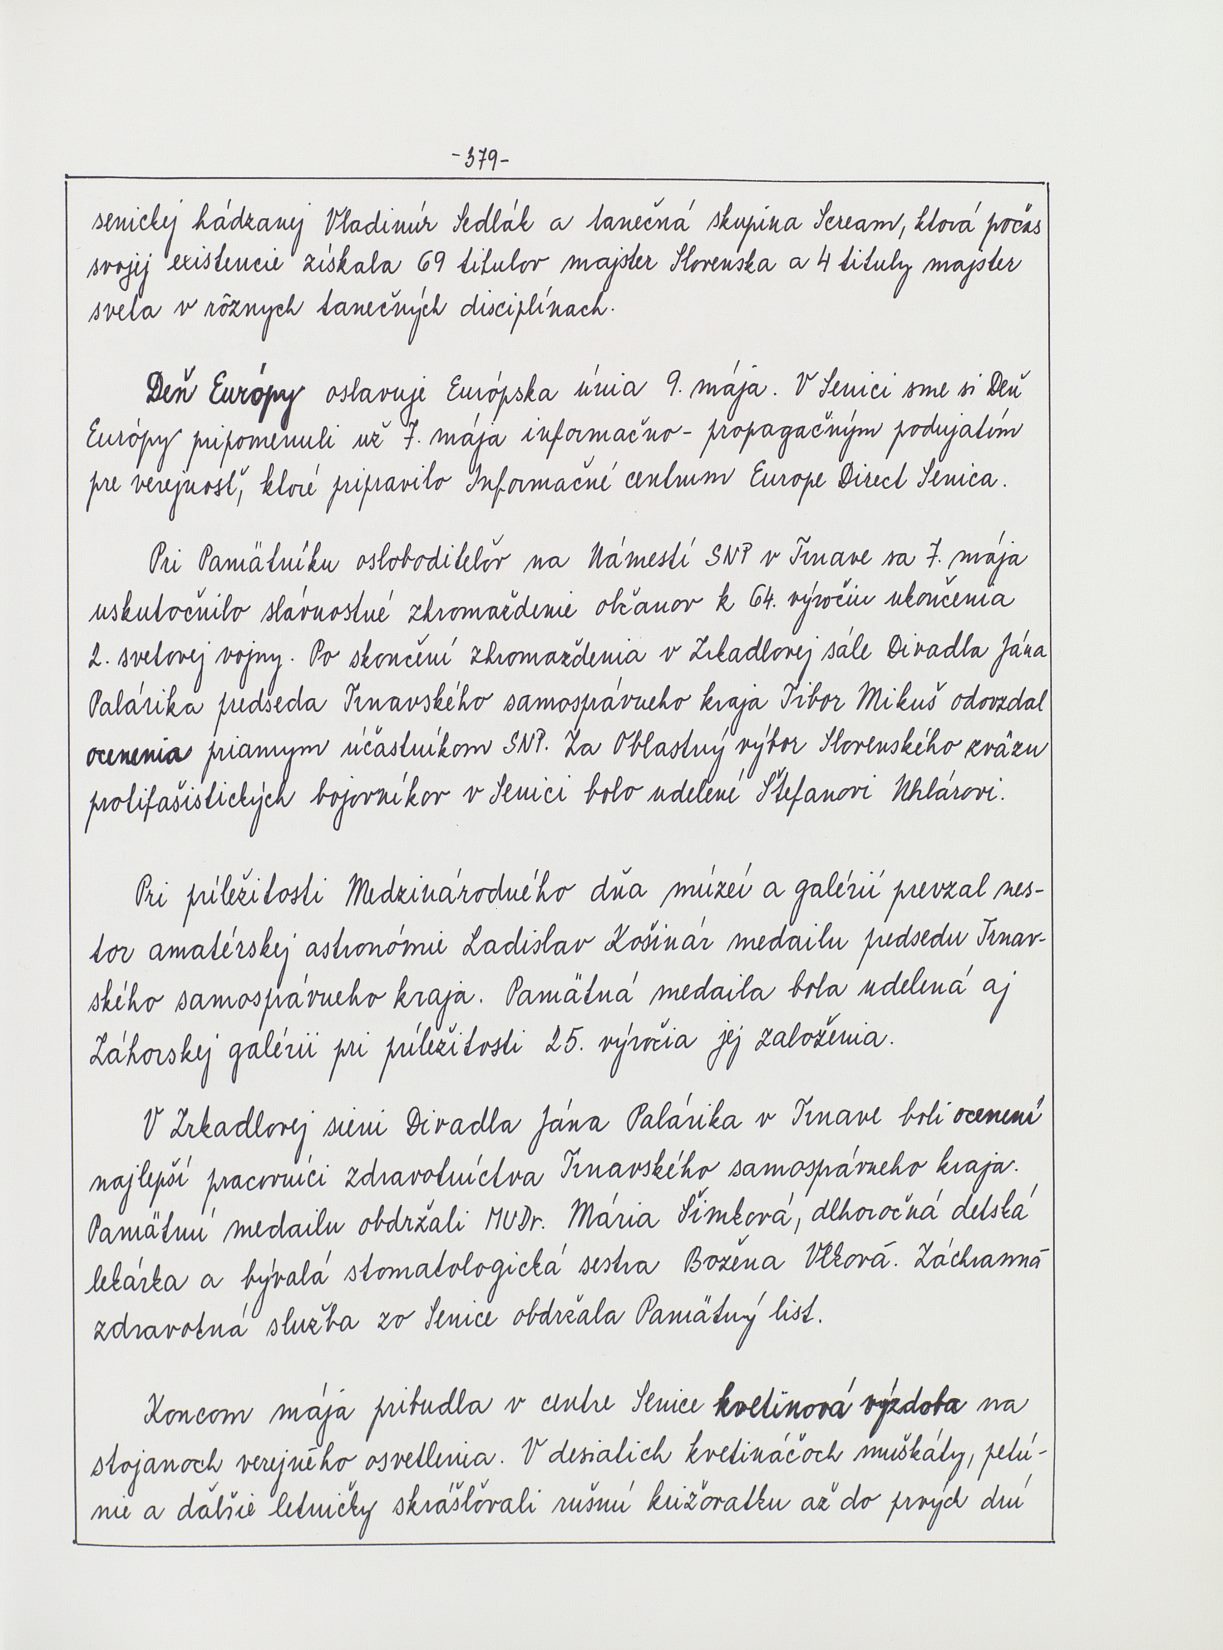 -379-
senickej hádzanej Vladimír Sedlák a tanečná skupina Scream, ktorá počas
svojej existencie získala 69 titulov majster Slovenska a 4 tituly majster
sveta v rôznych tanečných disciplínach.
Deň Európy oslavuje Európska únia 9. mája. V Senici sme si Deň
Európy pripomenuli už 7. mája informačno-propagačným podujatím
pre verejnosť, ktoré pripravilo Informačné centrum Europe Direct Senica.
Pri Pamätníku osloboditeľov na Námestí SNP v Trnave sa 7. mája
uskutočnilo slávnostné zhromaždenie občanov k 64. výročiu ukončenia
2. svetovej vojny. Po skončení zhromaždenia v Zrkadlovej sále Divadla Jána
Palárika predseda Trnavského samosprávneho kraja Tibor Mikuš odovzdal
ocenenia priamym účastníkom SNP. Za Oblastný výbor Slovenského zväzu
protifašistických bojovníkov v Senici bolo udelené Štefanovi Uhlárovi.
Pri príležitosti Medzinárodného dňa múzeí a galérií prevzal nes-
tor amatérskej astronómie Ladislav Košinár medailu predsedu Trnav-
ského samosprávneho kraja. Pamätná medaila bola udelená aj
Záhorskej galérii pri príležitosti 25. výročia jej založenia.
V Zrkadlovej sieni Divadla Jána Palárika v Trnave boli ocenení
najlepší pracovníci zdravotníctva Trnavského samosprávneho kraja.
Pamätnú medailu obdržali MUDr. Mária Šimková, dlhoročná detská
lekárka a bývalá stomatologická sestra Božena Vlková. Záchranná
zdravotná služba zo Senice obdržala Pamätný list.
Koncom mája pribudla v centre Senice kvetinová výzdoba na
stojanoch verejného osvetlenia. V desiatich kvetináčoch muškáty, petú-
nie a ďalšie letničky skrášľovali rušnú križovatku až do prvých dní